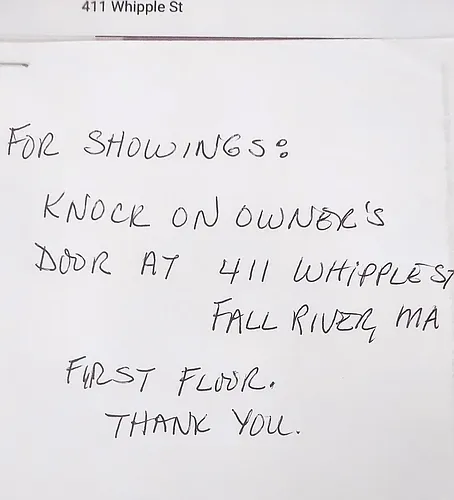 411 Whipple St
FOR SHOWINGS:
KNOCK ON OWNER'S
DOOR AT 411 WHIPPLE ST
FALL RIVER, MA
FIRST FLOOR.
THANK YOU.